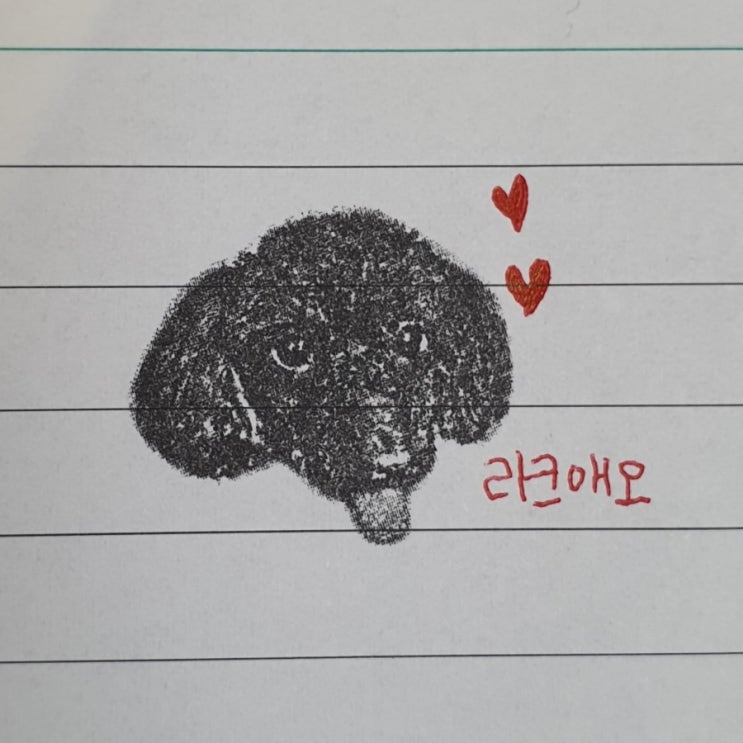 라크애오